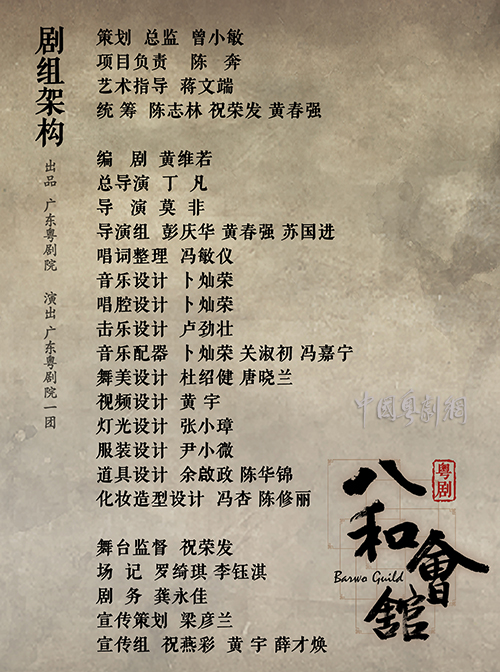 剧组架构
出品 广东粤剧院 演出 广东粤剧院一团
策划 总监 曾小敏
项目负责 陈 奔
艺术指导 蒋文端
统 筹 陈志林 祝荣发 黄春强
编 剧 黄维若
总导演 丁 凡
导 演 莫 非
导演组 彭庆华 黄春强 苏国进
唱词整理 冯敏仪
音乐设计 卜灿荣
唱腔设计 卜灿荣
击乐设计 卢劲壮
音乐配器 卜灿荣 关淑初 冯嘉宁
舞美设计 杜绍健 唐晓兰
视频设计 黄 宇
灯光设计 张小璋
服装设计 尹小微
道具设计 余啟政 陈华锦
化妆造型设计 冯杏 陈修丽
舞台监督 祝荣发
场 记 罗绮琪 李钰淇
剧 务 龚永佳
宣传策划 梁彦兰
宣传组 祝燕彩 黄 宇 薛才焕
中國粤劇網
粤剧
八和會舘
Barwo Guild